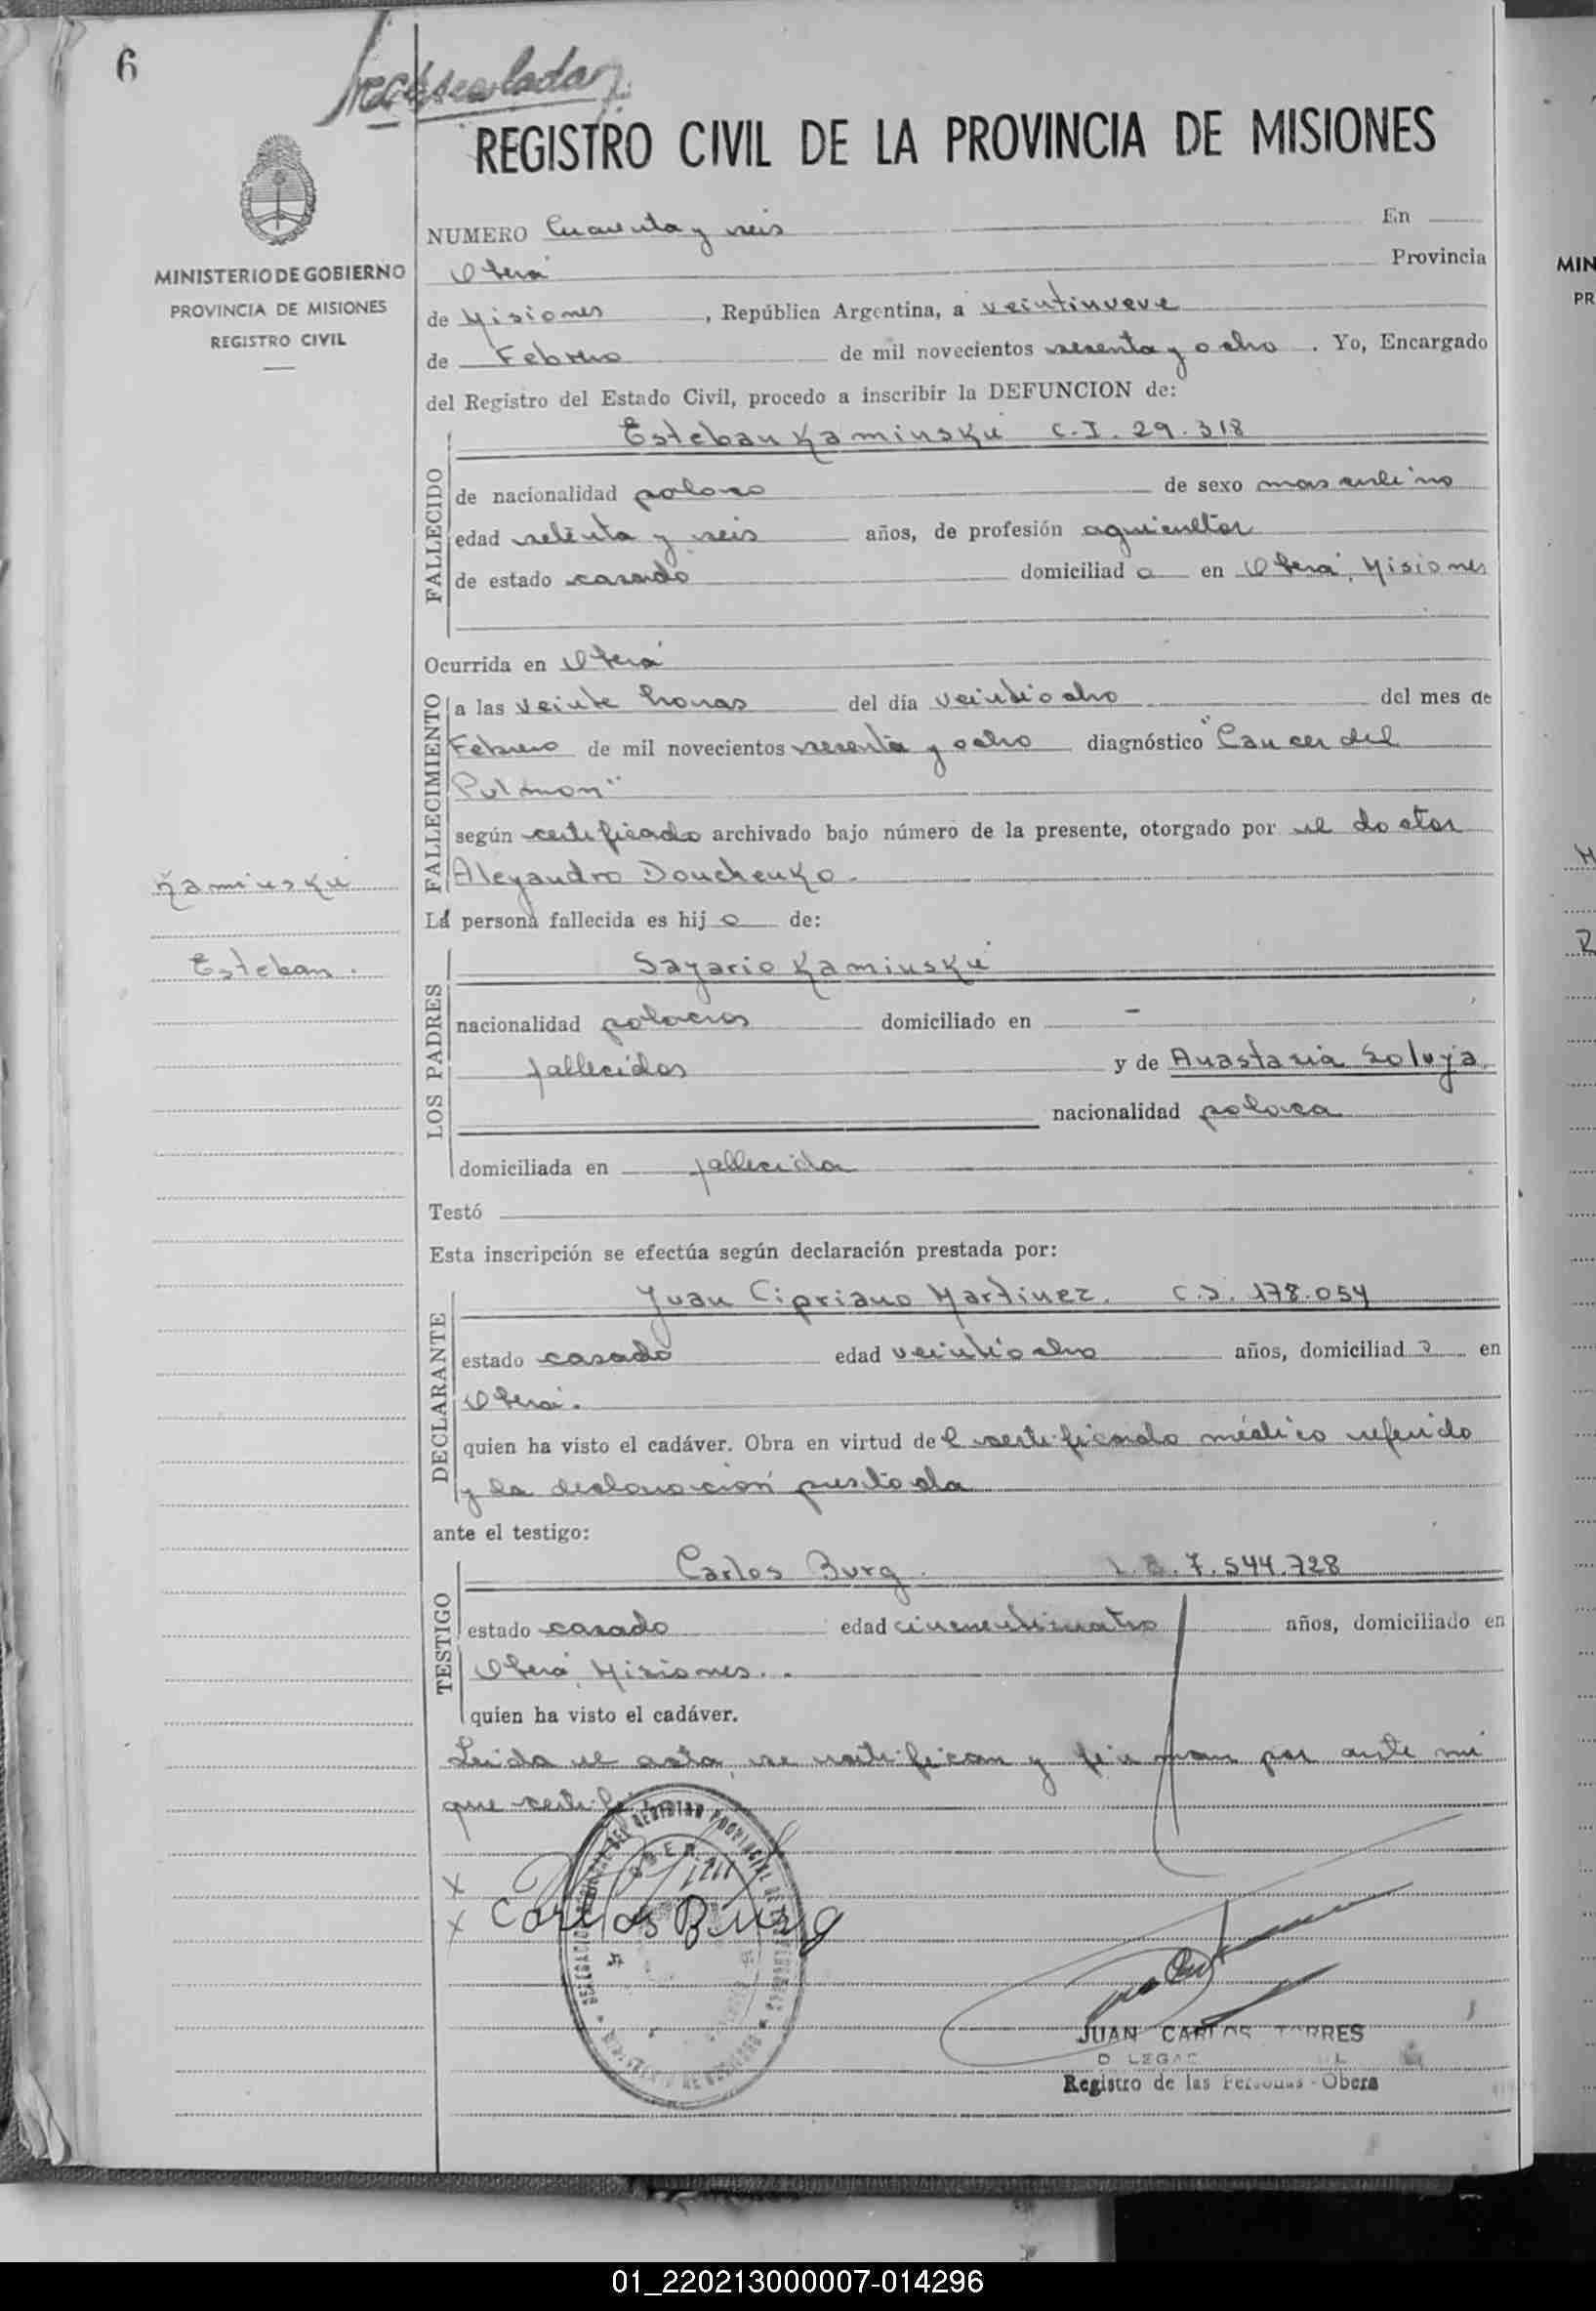 6
REGISTRO CIVIL DE LA PROVINCIA DE MISIONES
MINISTERIO DE GOBIERNO
PROVINCIA DE MISIONES
REGISTRO CIVIL
NUMERO Cuarenta y seis En
Oberá Provincia
de Misiones, República Argentina, a veintinueve
de Febrero de mil novecientos sesenta y ocho. Yo, Encargado
del Registro del Estado Civil, procedo a inscribir la DEFUNCION de:
FALLECIDO
Esteban Kaminski C.I. 29.318
de nacionalidad polaco de sexo masculino
edad setenta y seis años, de profesión agricultor
de estado casado domiciliado en Oberá, Misiones
Ocurrida en Oberá
FALLECIMIENTO
a las veinte horas del día veintiocho del mes de
Febrero de mil novecientos sesenta y ocho diagnóstico "Cancer del
Pulmon"
según certificado archivado bajo número de la presente, otorgado por el doctor
Alejandro Douchenko.
Kaminski
Esteban.
La persona fallecida es hijo de:
LOS PADRES
Sayario Kaminski
nacionalidad polacos domiciliado en -
fallecidos y de Anastasia
nacionalidad polaca
domiciliada en fallecida
Testó
Esta inscripción se efectúa según declaración prestada por:
DECLARANTE
Juan Cipriano Martinez. C.I. 178.054
estado casado edad veintiocho años, domiciliado en
Oberá.
quien ha visto el cadáver. Obra en virtud del certificado médico referido
y la declaración prestada
ante el testigo:
TESTIGO
Carlos Burg. 7.544.728
estado casado edad años, domiciliado en
Oberá, Misiones.
quien ha visto el cadáver.
Leida el acta, se ratifican y firman por ante mi
que
x
x Carlos Burg
JUAN CARLOS TORRES
Registro de las Personas - Obera
01_220213000007-014296